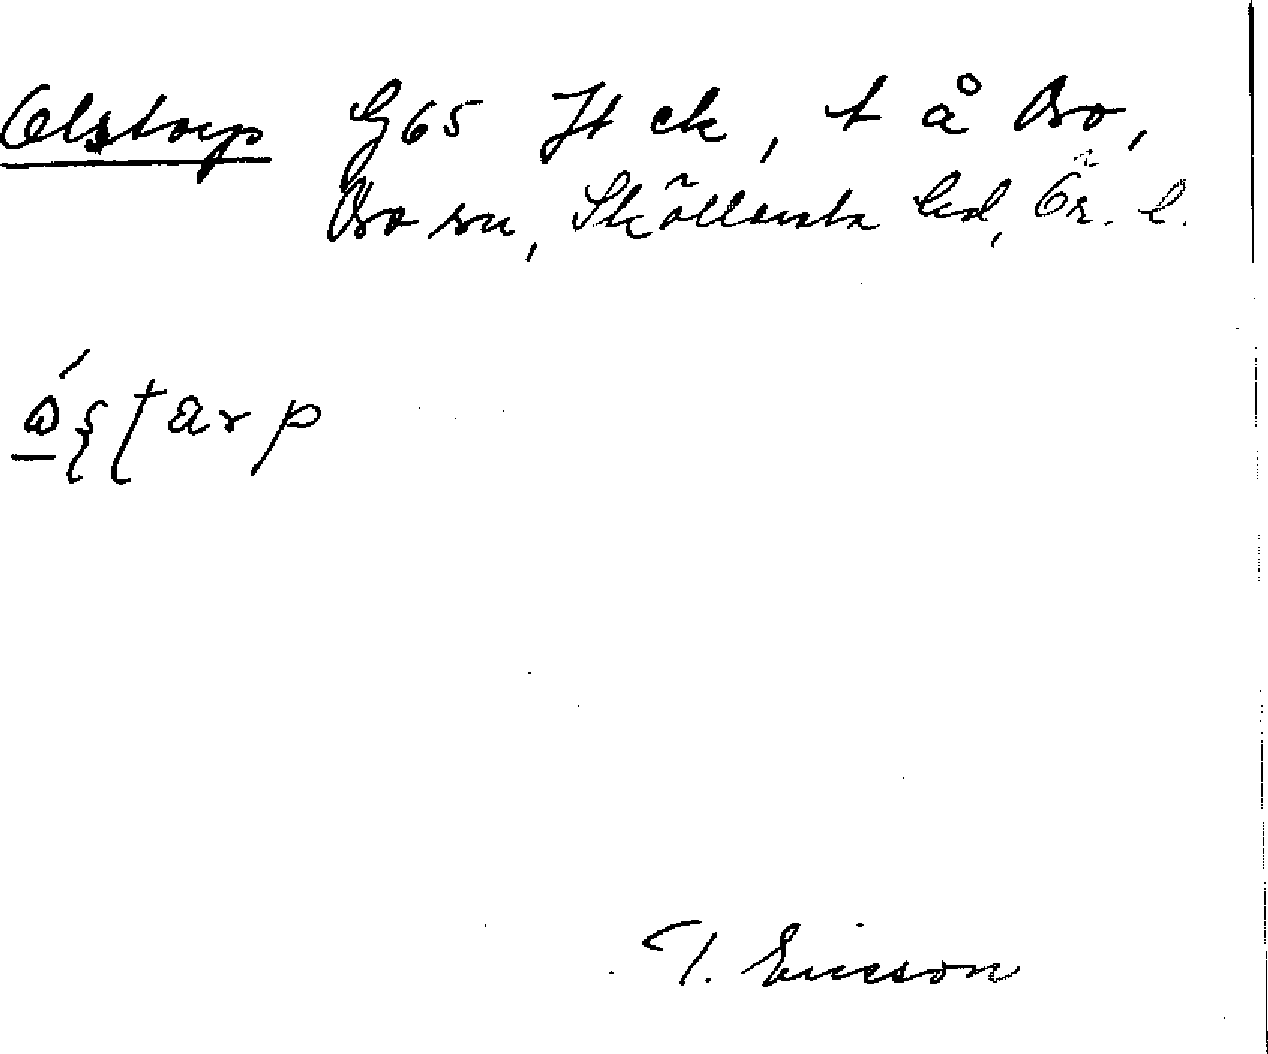 Olstorp G65 Jf ek, t å Bo,
Bo sn, Sköllersta hd, Ör. l.
ó̲ştarp
T. Ericson